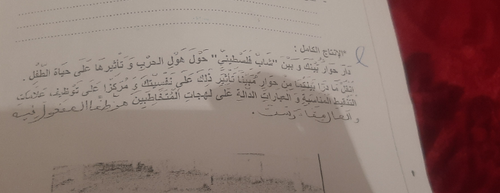 الإنتاج الكامل :
دَارَ حِوَارٌ بَيْنَكَ وَ بَيْنَ "شَابٍّ فِلَسْطِينِيٍّ" حَوْلَ هَوْلِ الحَرْبِ وَ تَأْثِيرِهَا عَلَى حَيَاةِ الطِّفْلِ.
اُنْقُلْ مَا دَارَ بَيْنَكُمَا مِنْ حِوَارٍ مُبَيِّنًا تَأْثِيرَ ذَلِكَ عَلَى نَفْسِيَّتِكَ وَ مُرَكِّزًا عَلَى تَوْظِيفِ عَلَامَاتِ
التَّنْقِيطِ المُنَاسِبَةِ وَ العِبَارَاتِ الدَّالَّةِ عَلَى لَهَجَاتِ المُتَخَاطِبَيْنِ موظفا المفعول فيه
و أفعال